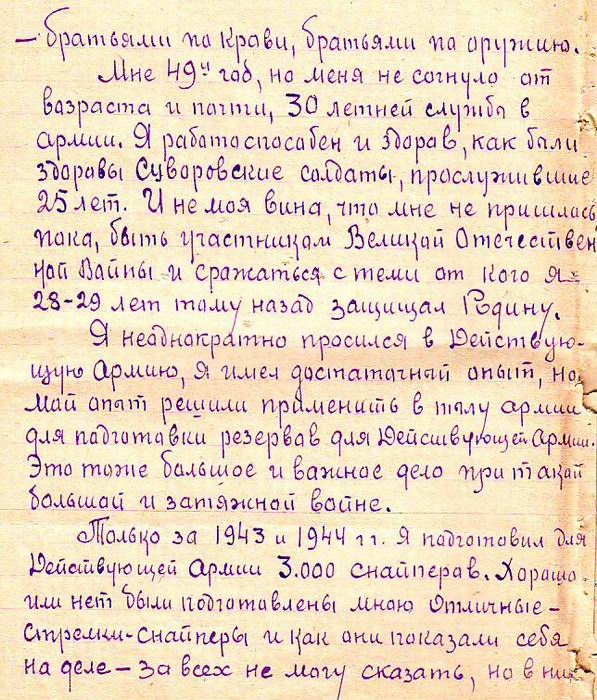 — братьями по крови, братьями по оружию.
Мне 49й год, но меня не согнуло от
возраста и почти, 30 летней службы в
армии. Я работоспособен и здоров, как были
здоровы Суворовские солдаты, прослужившие
25 лет. И не моя вина, что мне не пришлось
пока, быть участником Великой Отечествен
ной Войны и сражаться с теми от кого я
28-29 лет тому назад защищал Родину.
Я неоднократно просился в Действую-
щую Армию, Я имел достаточный опыт, но
мой опыт решили применить в тылу армии
для подготовки резервов для Действующей Армии.
Это тоже большое и важное дело при такой
большой и затяжной войне.
Только за 1943 и 1944 гг. Я подготовил для
Действующей Армии 3.000 снайперов. Хорошо
или нет были подготовлены мною Отличные-
стрелки-снайперы и как они показали себя
на деле — за всех не могу сказать, но в них